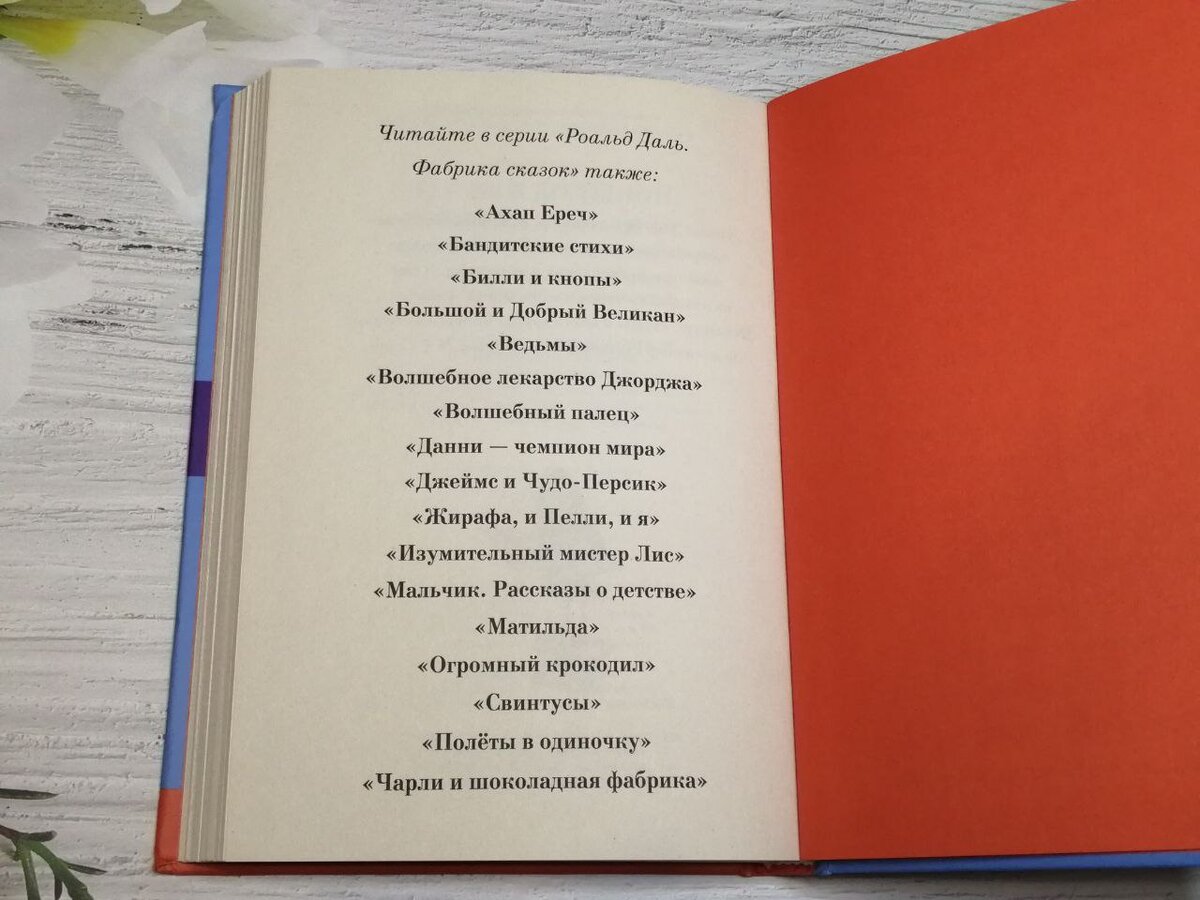 Читайте в серии «Роальд Даль.
Фабрика сказок» также:
«Ахап Ереч»
«Бандитские стихи»
«Билли и кнопы»
«Большой и Добрый Великан»
«Ведьмы»
«Волшебное лекарство Джорджа»
«Волшебный палец»
«Данни — чемпион мира»
«Джеймс и Чудо-Персик»
«Жирафа, и Пелли, и я»
«Изумительный мистер Лис»
«Мальчик. Рассказы о детстве»
«Матильда»
«Огромный крокодил»
«Свинтусы»
«Полёты в одиночку»
«Чарли и шоколадная фабрика»